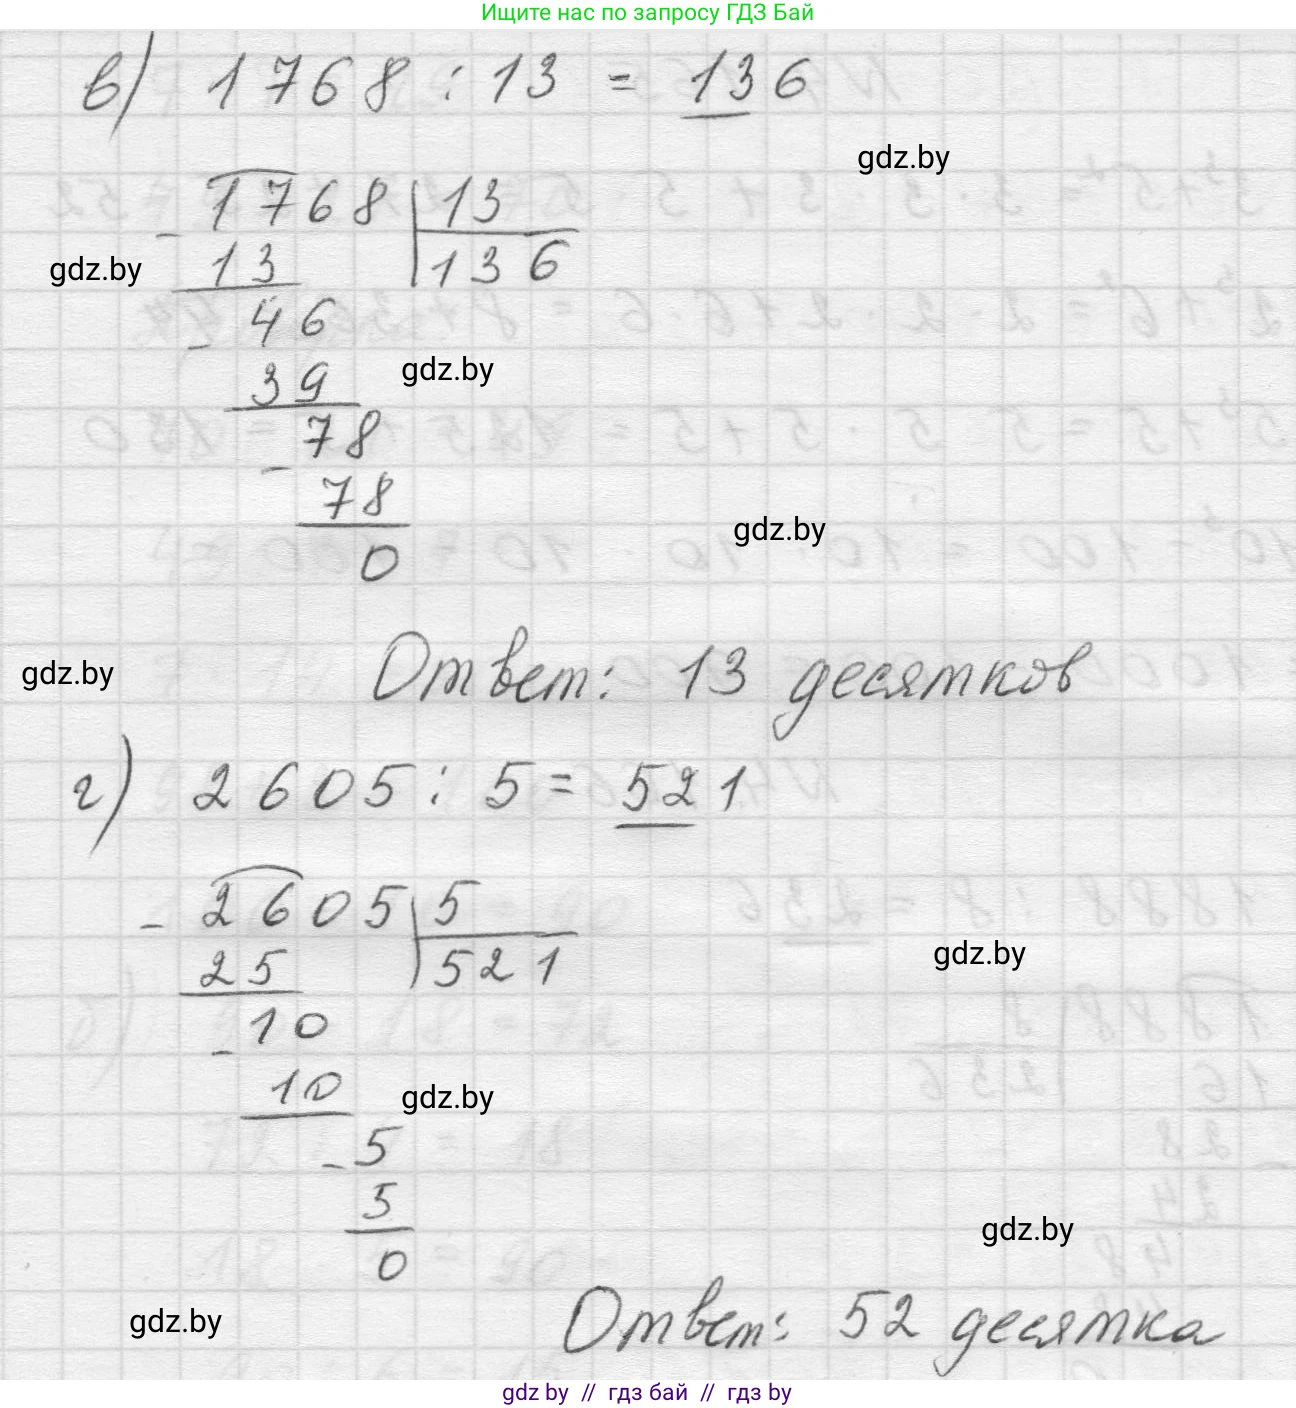 Ищите нас по запросу ГДЗ Бай
в) 1768 : 13 = 136
gdz.by
- 1768 | 13
gdz.by
13 | 136
- 46
gdz.by
39
- 78
78
gdz.by
0
gdz.by
Ответ: 13 десятков
г) 2605 : 5 = 521
- 2605 | 5
gdz.by
25 | 521
- 10
10
gdz.by
- 5
5
gdz.by
0
gdz.by
Ответ: 52 десятка
gdz by // гдз бай // гдз by